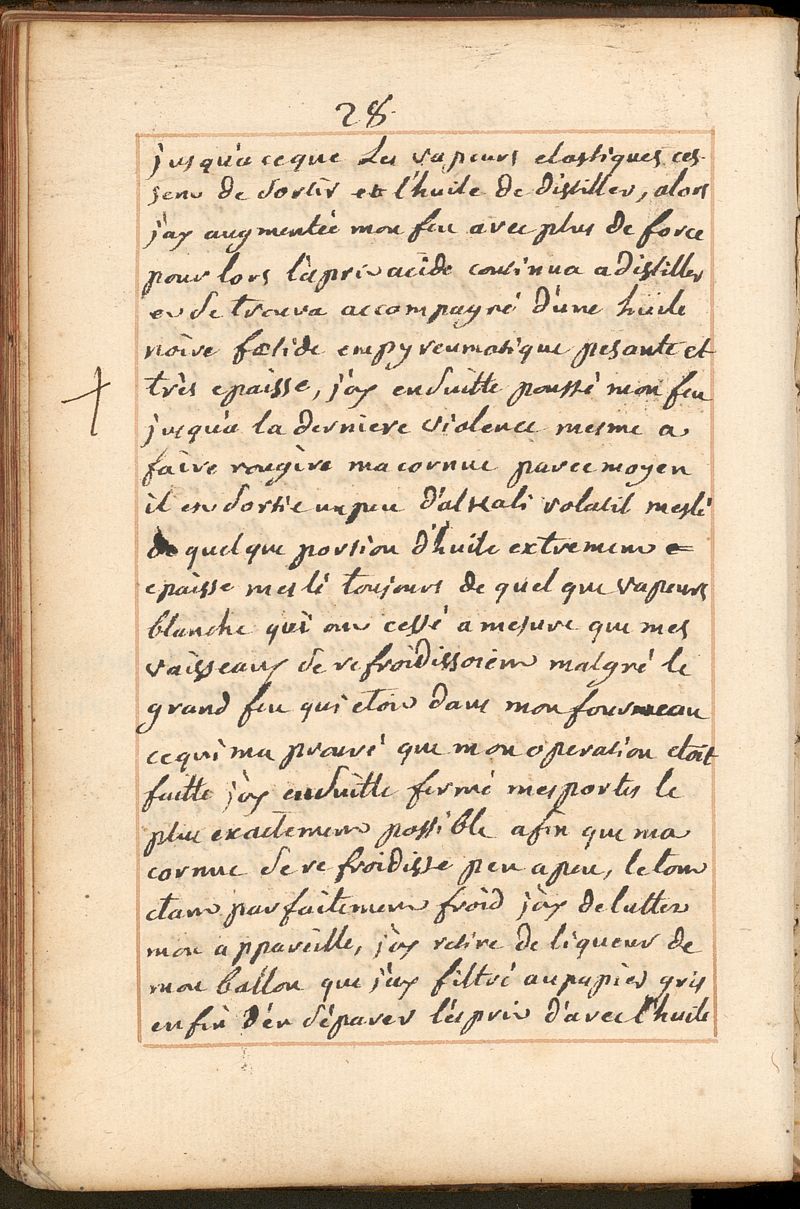 28.
jusqu'a ceque Les vapeurs elastiques ces-
sent de sortir et l'huile de distiller, alors
j'ay augmentée mon feu avec plus de force
pour lors l'esprit acide continua a distiller
et se trouva accompagné d'une huile
noire fœtide empyreumatique pesante et
très epaisse, j'ay ensuitte poussé mon feu
jusqu'a la derniere violence mesme a
faire rougire ma cornue par ce moyen
il en sortie un peu d'alkali volatil meslé
de quelque portion d'huile extremement
epaisse meslé toujours de quelque vapeurs
blanche qui ont cessé a mesure que mes
vaisseaux se refroidissoient malgré le
grand feu qui etoit dans mon fourneau
cequi ma prouvé que mon operation etoit
faitte j'ay ensuitte fermé mes portes le
plus exactement possible afin que ma
cornue se refroidisse peu a peu, le tout
etant parfaitement froid j'ay delutter
mon appareille, j'ay retire de liqueur de
mon ballon que j'ay filtré au papier gris
enfin d'en séparer l'esprit d'avec l'huile